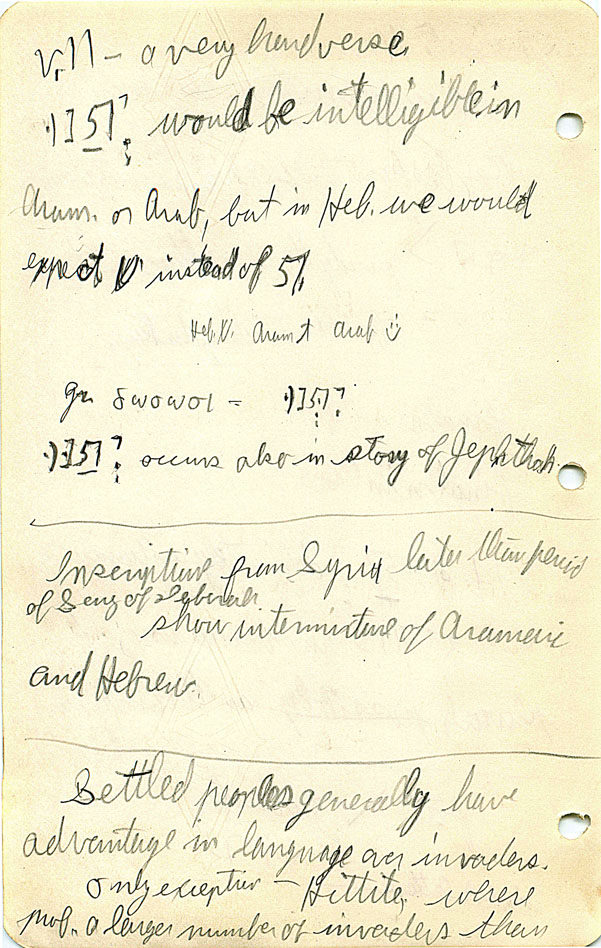 v. 11 – a very hard verse
יתנו would be intelligible in
Aram. or Arab, but in Heb. we would
expect ש instead of ת.
Heb. ש Aram ת Arab ث
gr =  יתנו
יתנו occurs also in story of Jephthah.
Inscriptions from Syria later than period
of Song of Deborah
show intermixture of Aramaic
and Hebrew.
Settled peoples generally have
advantage in language over invaders.
Only exception – Hittite, where
prob. a larger number of invaders than